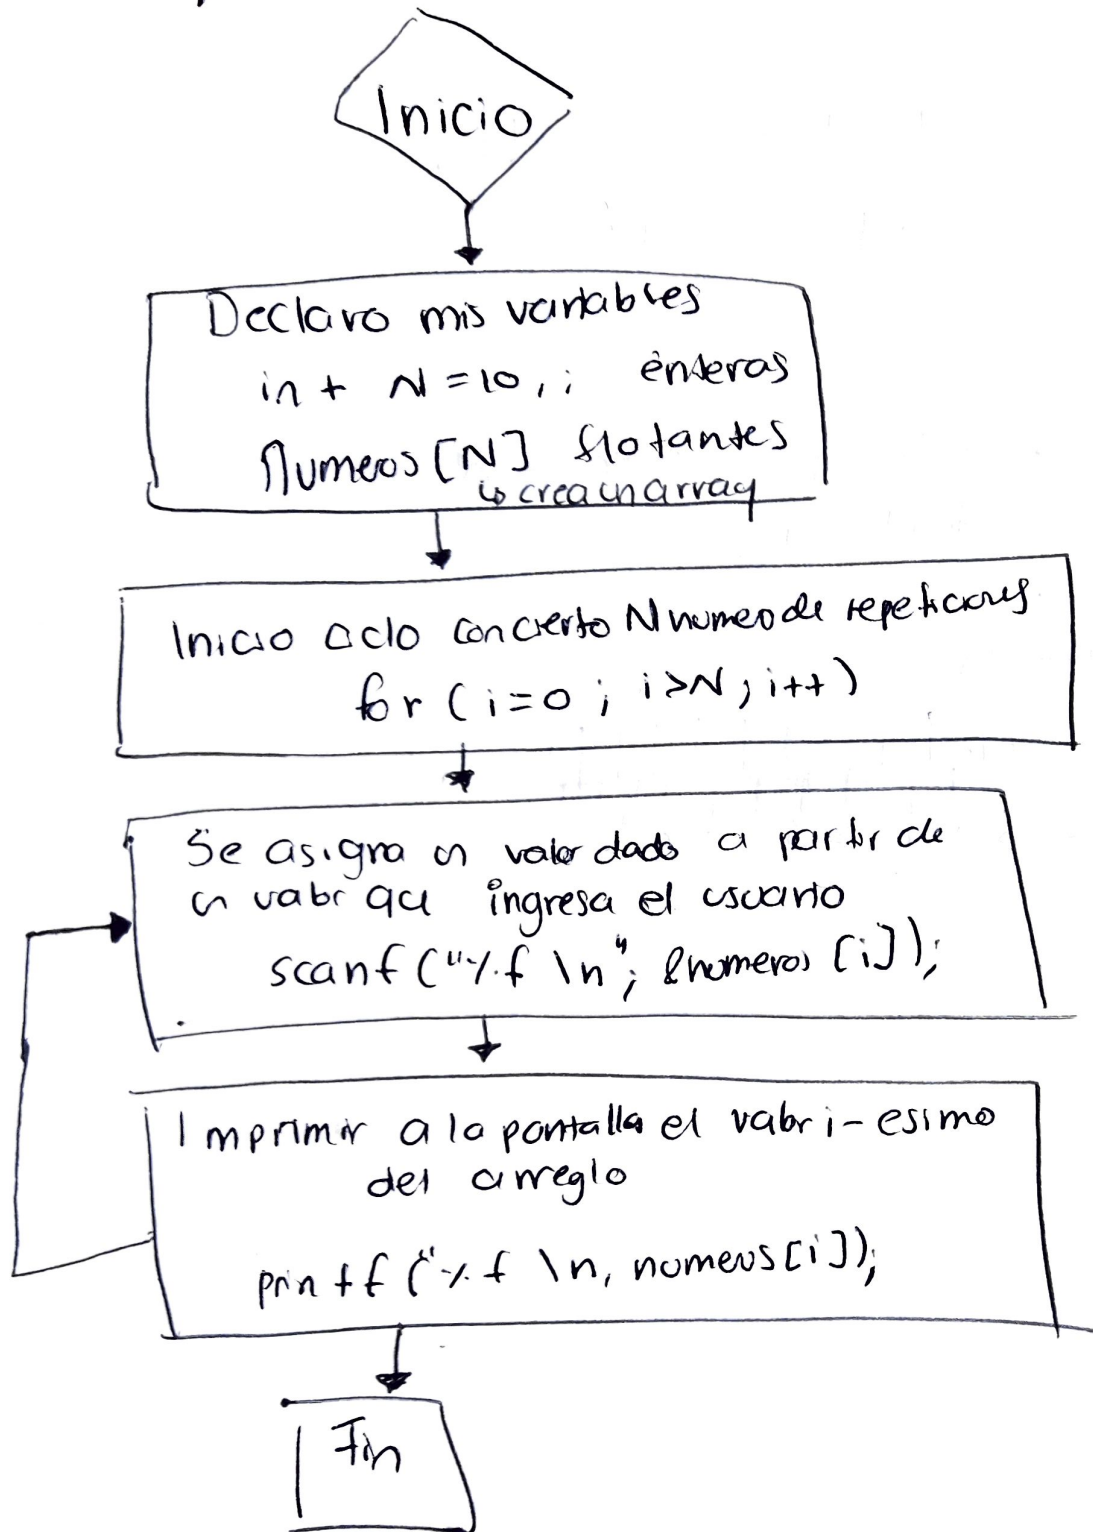 Inicio
Declaro mis variables
int N = 10, i enteras
Numeros [N] flotantes
↳ crea un array
Inicio ciclo con cierto N numero de repeticiones
for ( i = 0 ; i > N ; i++ )
Se asigna un valor dado a partir de
un valor que ingresa el usuario
scanf ("%f \n"; &numeros [i]);
Imprimir a la pantalla el valor i-esimo
del arreglo
printf ("%f \n, numeros [i]);
Fin